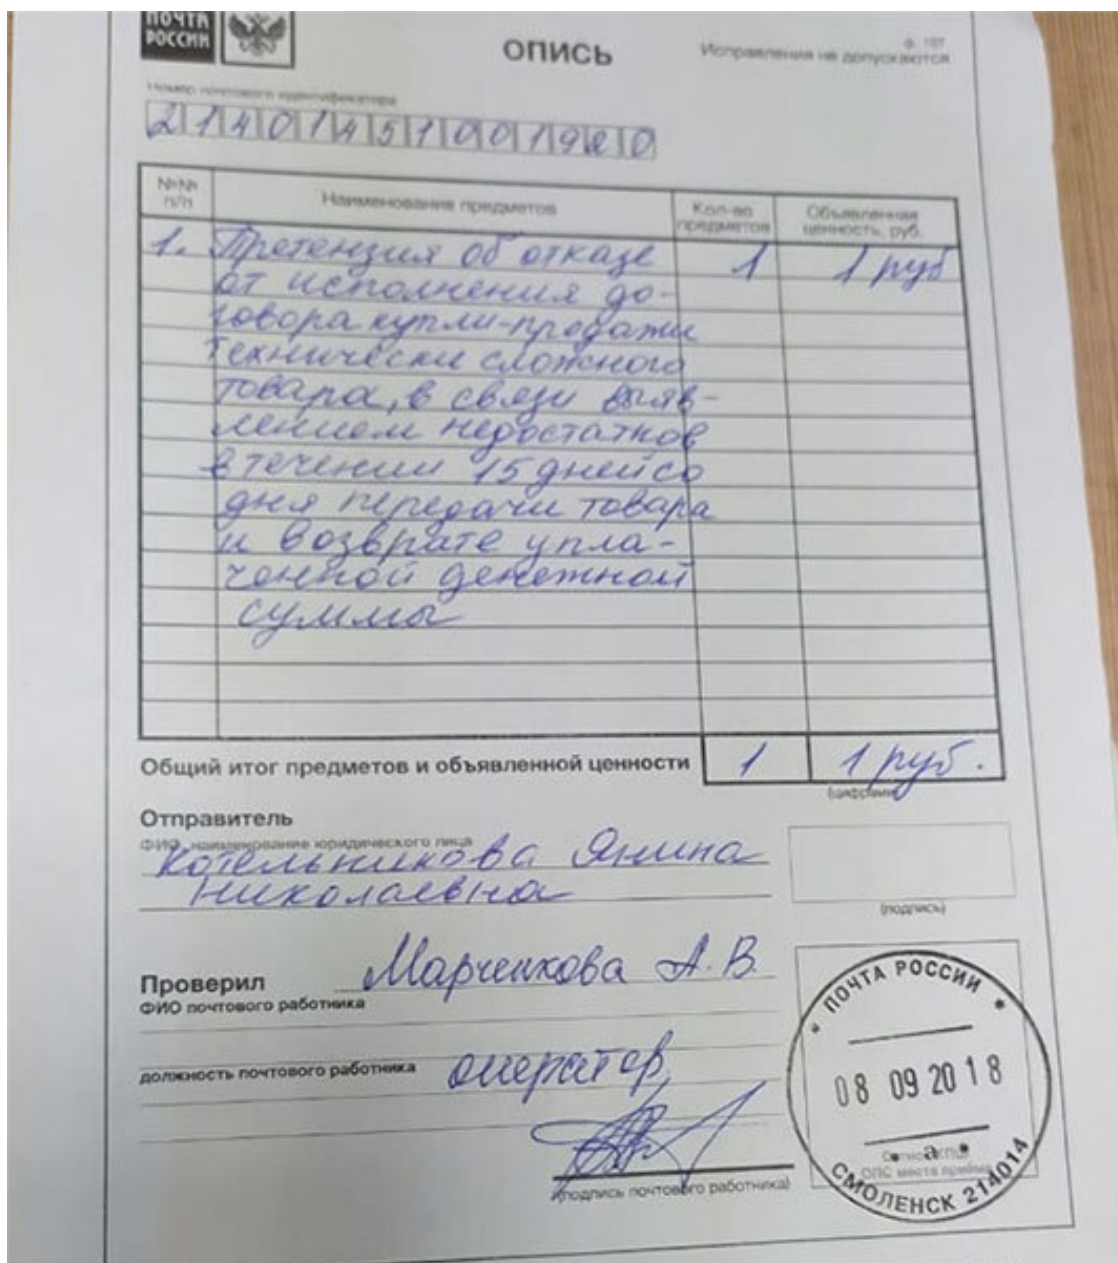 ПОЧТА
РОССИИ
ОПИСЬ
ф. 107
Исправления не допускаются
Номер почтового идентификатора
21401451001920
№№ п/п
Наименование предметов
Кол-во предметов
Объявленная ценность, руб.
1. Претензия об отказе 1 1 руб
от исполнения до-
говора купли-продажи
технически сложного
товара, в связи выяв-
лением недостатков
в течении 15 дней со
дня передачи товара
и возврате упла-
ченной денежной
суммы
Общий итог предметов и объявленной ценности 1 1 руб.
(цифрами)
Отправитель
ФИО, наименование юридического лица
Котельникова Янина
Николаевна
(подпись)
Проверил Марченкова А.В.
ФИО почтового работника
должность почтового работника оператор
(подпись почтового работника)
ПОЧТА РОССИИ
08 09 20 18
а
ОПС места приёма
СМОЛЕНСК 214014